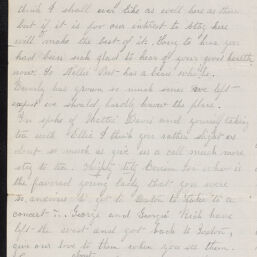 think I shall not like as well here as there
but if it is for our interest to stay here
will make the best of it. Harry to hear you
had been sick glad to hear of your good health
now. So Nellie has a beau
Beverly has grown so much since we left
expect we should hardly know the place.
You spoke of Mattie Davis and going taking
tea with Ellie I think you rather slight us
dont so much as give us a call much more
stay to tea. for whom is
the favored young lady that you were
to Boston to take to a
concert George and Georgie have
left the west and got back to Boston,
give our love to them when you see them.